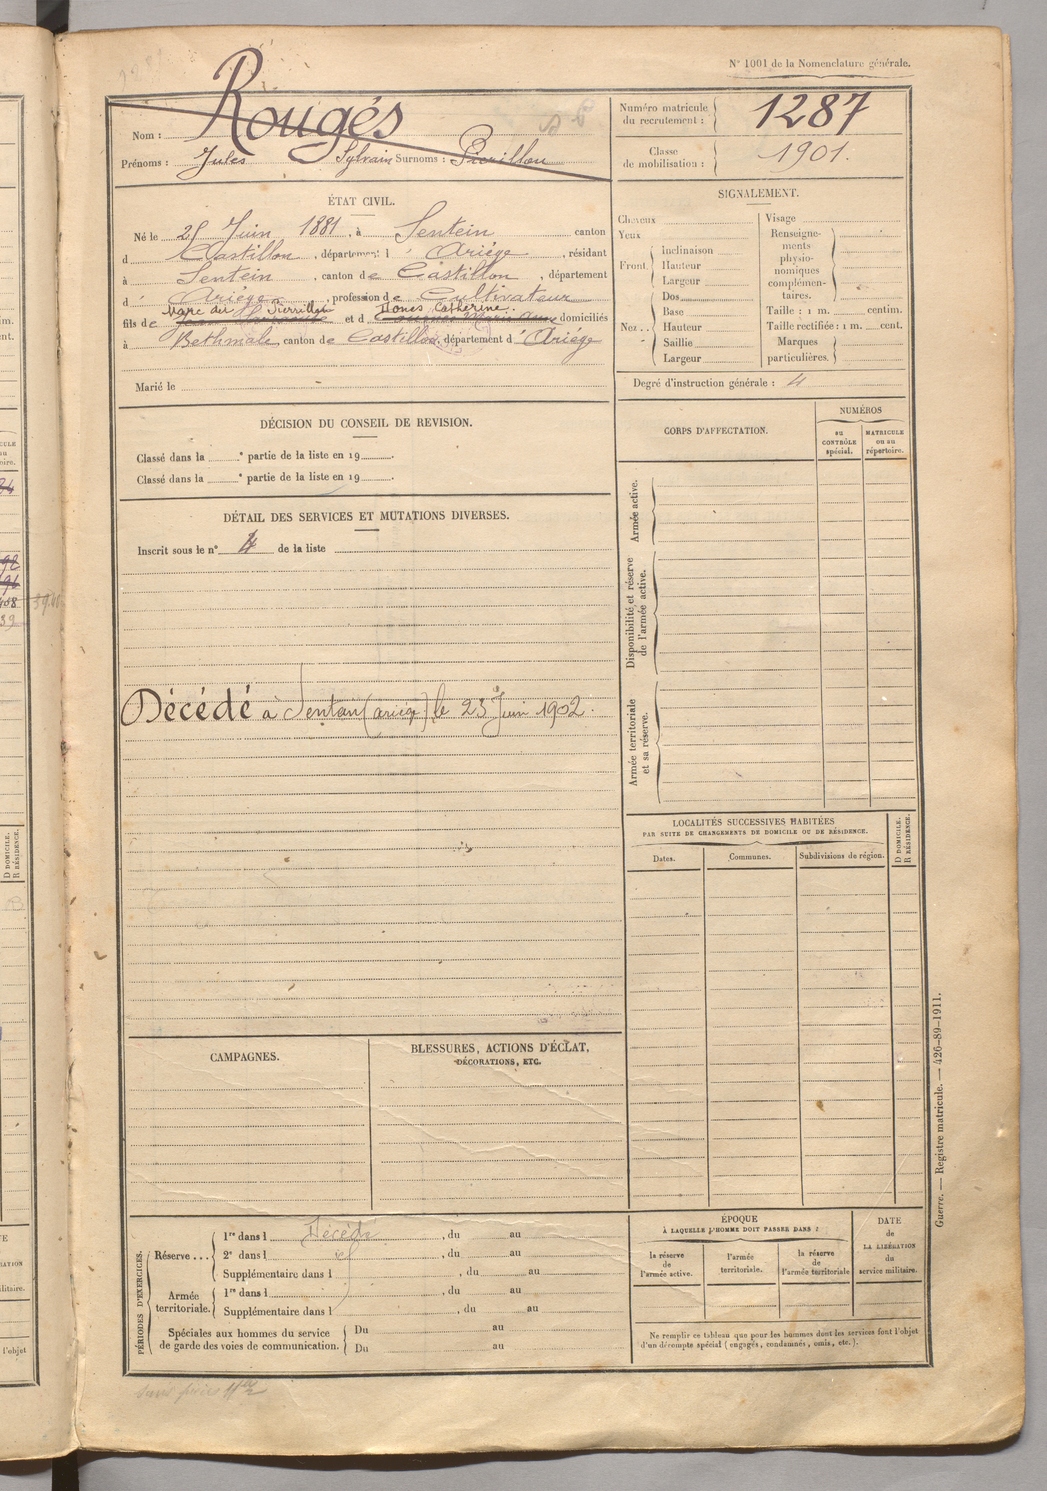 N° 1001 de la Nomenclature générale.
Nom : Rougés
Prénoms : Jules Sylvain Surnoms : Pierillou
Numéro matricule du recrutement : 1287
Classe de mobilisation : 1901.
ÉTAT CIVIL.
Né le 25 Juin 1881, à Sentein canton
d Castillon, département d Ariége, résidant
à Sentein, canton de Castillon, département
d' Ariége, profession de Cultivateur
fils de Marc dit Pierrillou et d Catherine domiciliés
à Bethmale, canton de Castillon, département d' Ariége
Marié le
SIGNALEMENT.
Cheveux
Yeux
Front.
Inclinaison
Hauteur
Largeur
Nez
Dos
Base
Hauteur
Saillie
Largeur
Visage
Renseigne-
ments
physio-
nomiques
complémen-
taires.
Taille : 1 m. centim.
Taille rectifiée : 1 m. cent.
Marques
particulières.
Degré d'instruction générale : 4
DÉCISION DU CONSEIL DE REVISION.
Classé dans la e partie de la liste en 19 .
Classé dans la e partie de la liste en 19 .
CORPS D'AFFECTATION.
NUMÉROS
au
CONTRÔLE
spécial.
MATRICULE
ou au
répertoire.
Armée active.
Disponibilité et réserve
de l'armée active.
Armée territoriale
et sa réserve.
DÉTAIL DES SERVICES ET MUTATIONS DIVERSES.
Inscrit sous le n° 4 de la liste
Décédé à Sentein (ariège) le 23 Juin 1902.
LOCALITÉS SUCCESSIVES HABITÉES
PAR SUITE DE CHANGEMENTS DE DOMICILE OU DE RÉSIDENCE.
Dates.
Communes.
Subdivisions de région.
D DOMICILE.
R RÉSIDENCE.
CAMPAGNES.
BLESSURES, ACTIONS D'ÉCLAT,
DÉCORATIONS, ETC.
PÉRIODES D'EXERCICES.
Réserve ...
1re dans l Décédé, du au
2e dans l , du au
Supplémentaire dans l , du au
Armée
territoriale.
1re dans l , du au
Supplémentaire dans l , du au
Spéciales aux hommes du service
de garde des voies de communication.
Du au
Du au
ÉPOQUE
À LAQUELLE L'HOMME DOIT PASSER DANS :
la réserve
de
l'armée active.
l'armée
territoriale.
la réserve
de
l'armée territoriale
DATE
de
LA LIBÉRATION
du
service militaire.
Ne remplir ce tableau que pour les hommes dont les services font l'objet
d'un décompte spécial (engagés, condamnés, omis, etc.).
Guerre. — Registre matricule. — 426-89-1911.